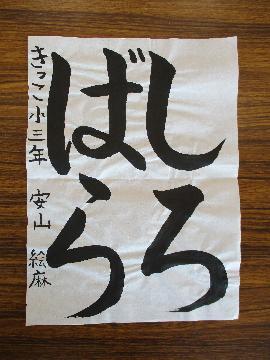 しろ
ばら
きっこ小三年 安山 絵麻